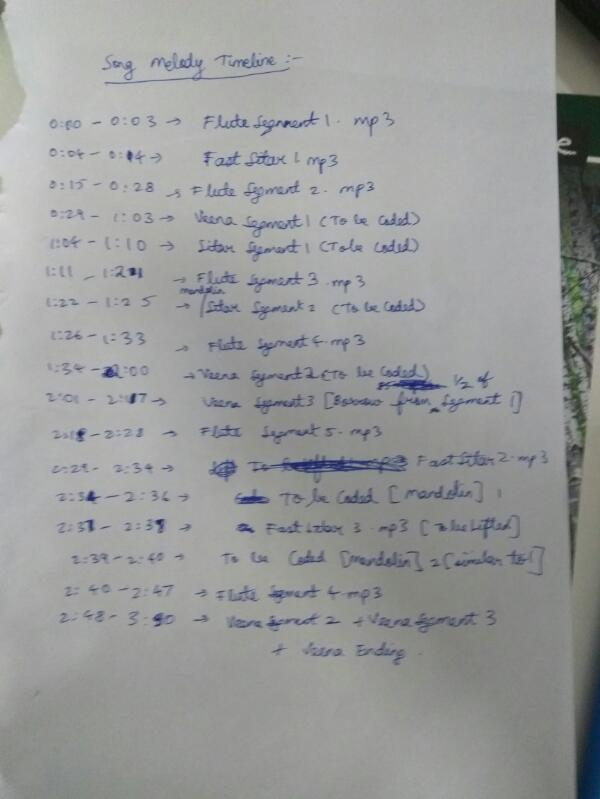 Song Melody Timeline :-
0:00 - 0:03 → Flute Segment 1. mp3
0:04 - 0:14 → Fast Sitar 1 mp3
0:15 - 0:28 → Flute Segment 2. mp3
0:29 - 1:03 → Veena Segment 1 (To be Coded)
1:04 - 1:10 → Sitar Segment 1 (To be Coded)
1:11 - 1:21 → Flute Segment 3. mp3
mandolin
1:22 - 1:25 → /Sitar Segment 2 (To be Coded)
1:26 - 1:33 → Flute Segment 4. mp3
1:34 - 2:00 → Veena Segment 2 (To be Coded)
1/2 of
2:01 - 2:17 → Veena Segment 3 [Borrow from Segment 1]
2:18 - 2:28 → Flute Segment 5. mp3
2:29 - 2:34 → Fast Sitar 2. mp3
2:34 - 2:36 → To be Coded [mandolin] 1
2:37 - 2:38 → Fast Sitar 3. mp3 [To be lifted]
2:39 - 2:40 → To be Coded [mandolin] 2 [similar to 1]
2:40 - 2:47 → Flute Segment 4. mp3
2:48 - 3:50 → Veena Segment 2 + Veena Segment 3
+ Veena Ending.
e